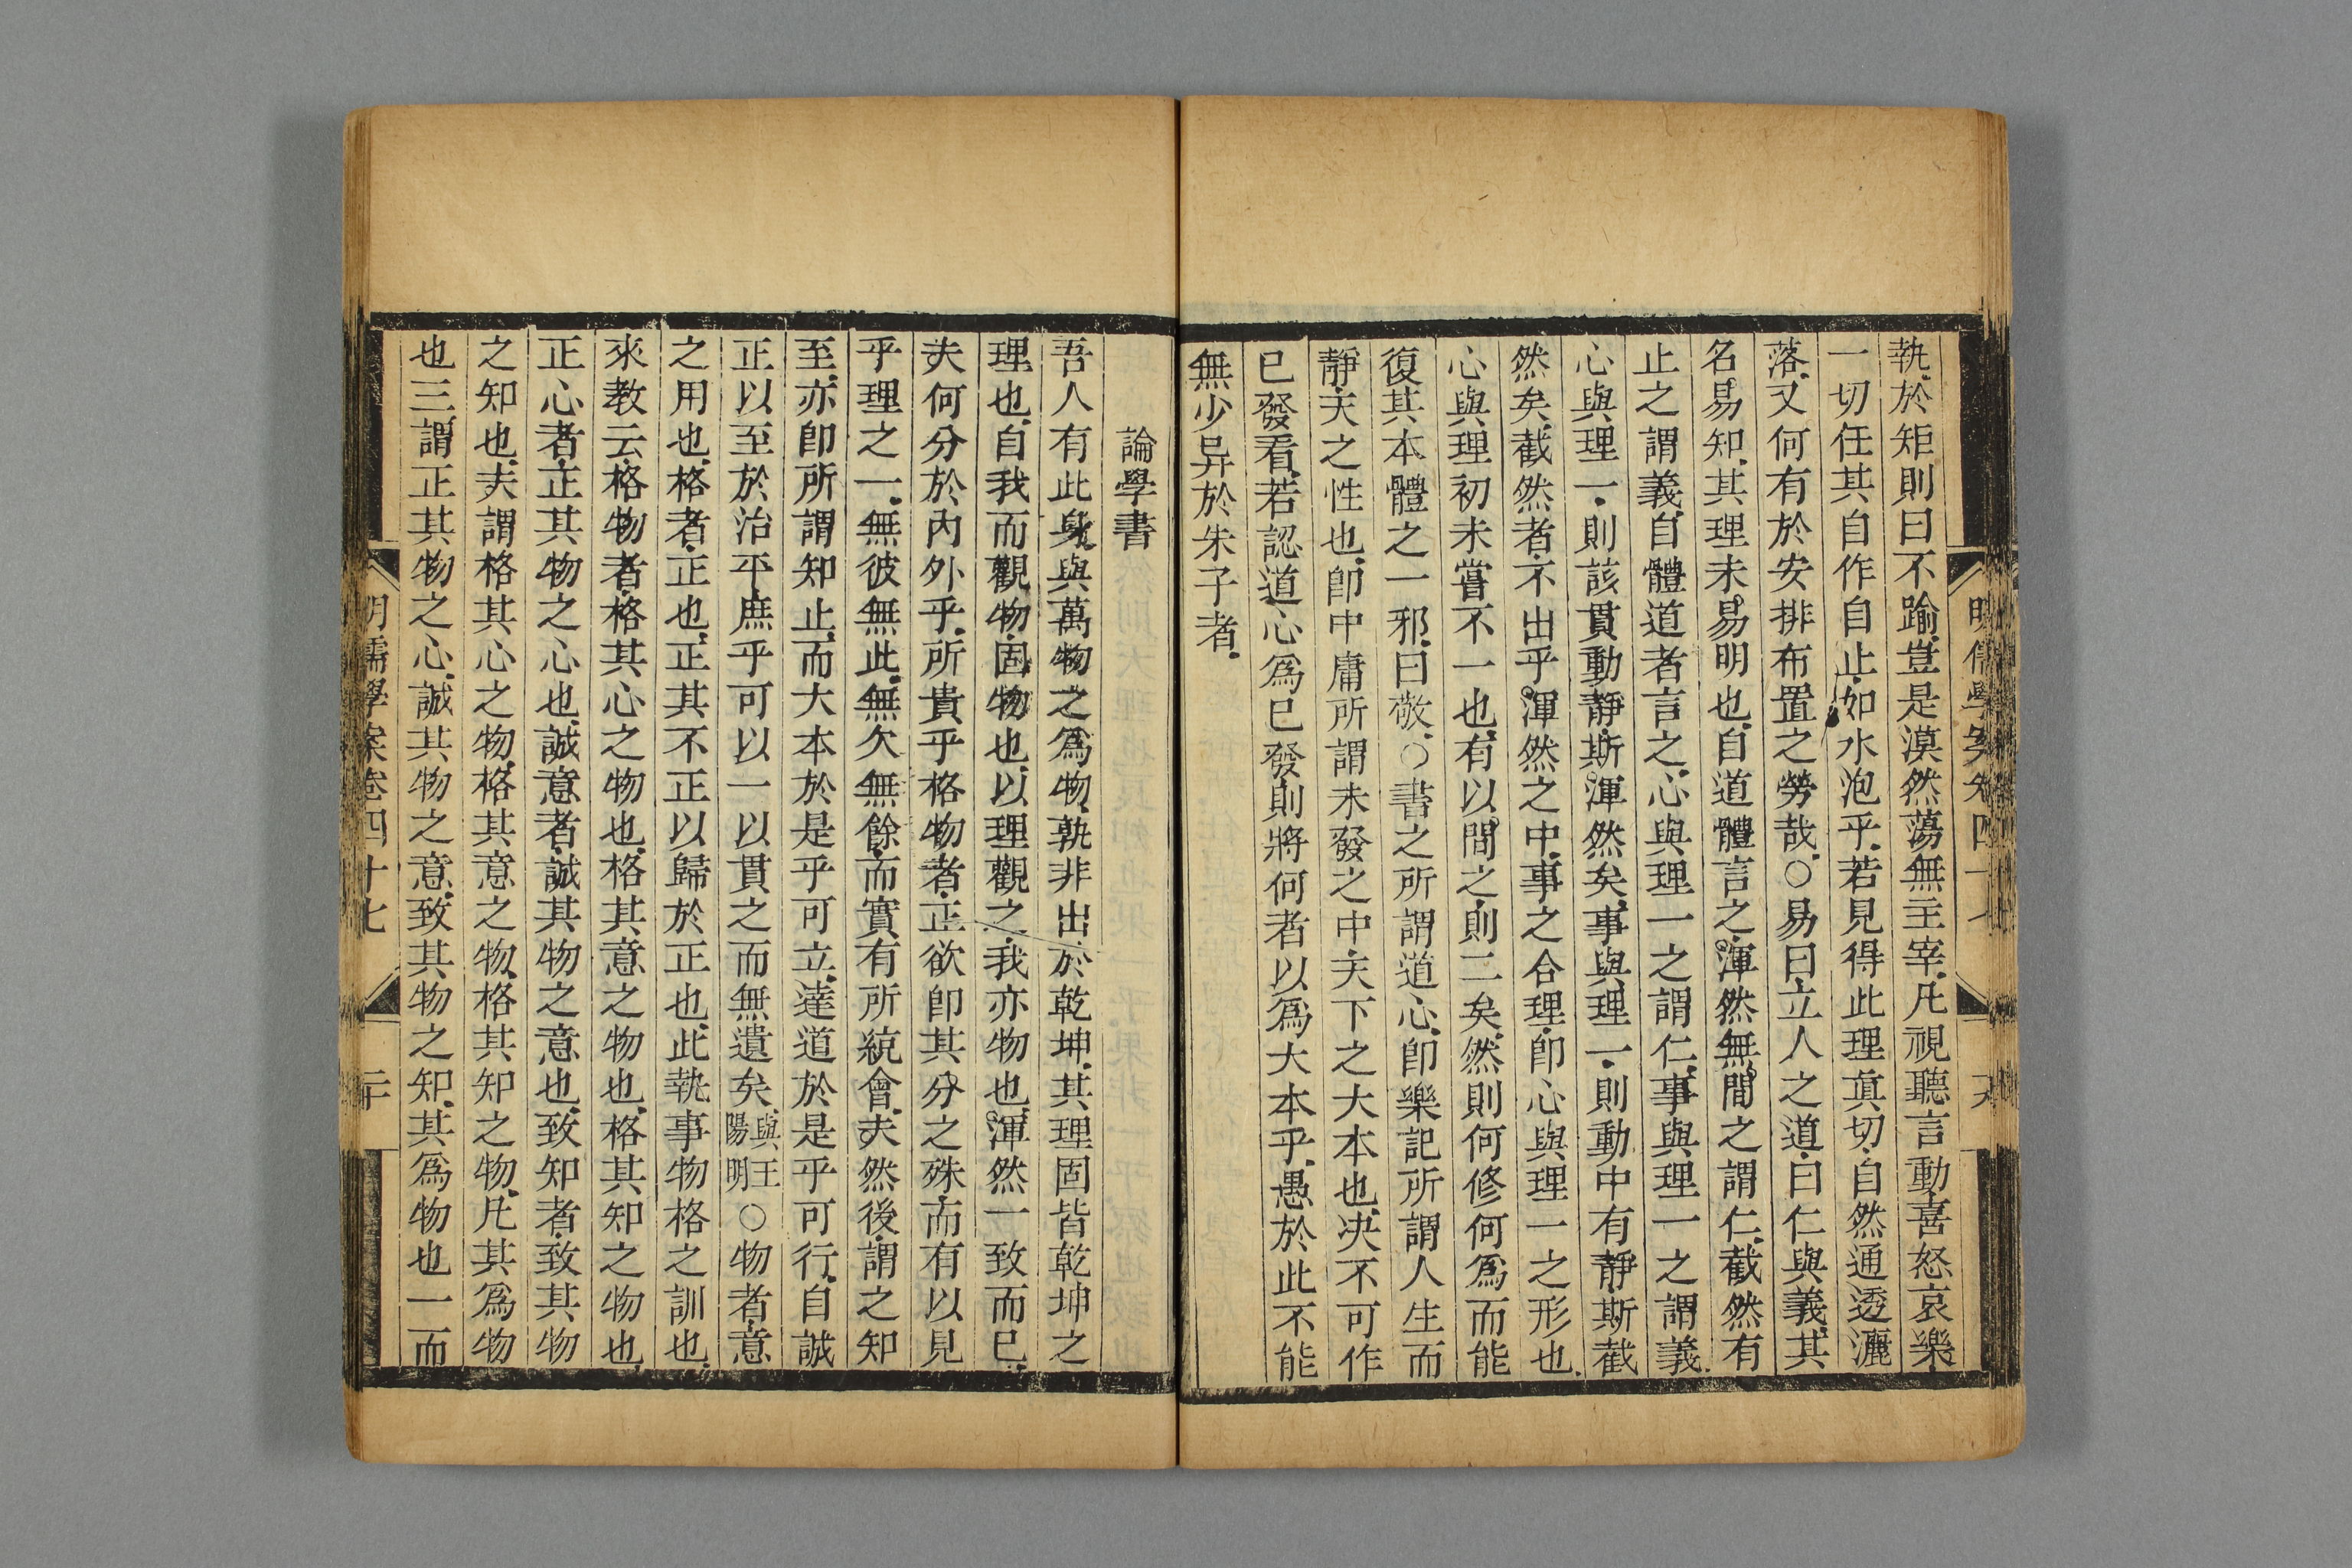 執於矩則曰不踰豈是漠然蕩無主宰凡視聽言動喜怒哀樂
一切任其自作自止如水泡乎若見得此理眞切自然通透灑
落又何有於安排布置之勞哉○易曰立人之道曰仁與義其
名易知其理未易明也自道體言之渾然無間之謂仁截然有
止之謂義自體道者言之心與理一之謂仁事與理一之謂義
心與理一則該貫動靜斯渾然矣事與理一則動中有靜斯截
然矣截然者不出乎渾然之中事之合理卽心與理一之形也
心與理初未嘗不一也有以間之則二矣然則何修何爲而能
復其本體之一邪曰敬○書之所謂道心卽樂記所謂人生而
靜天之性也卽中庸所謂未發之中天下之大本也决不可作
已發看若認道心爲已發則將何者以爲大本乎愚於此不能
無少异於朱子者
論學書
吾人有此身與萬物之爲物孰非出於乾坤其理固皆乾坤之
理也自我而觀物固物也以理觀之我亦物也渾然一致而已
夫何分於內外乎所貴乎格物者正欲卽其分之殊而有以見
乎理之一無彼無此無欠無餘而實有所統會夫然後謂之知
至亦卽所謂知止而大本於是乎可立達道於是乎可行自誠
正以至於治平庶乎可以一以貫之而無遺矣與王陽明○物者意
之用也格者正也正其不正以歸於正也此執事物格之訓也
來教云格物者格其心之物也格其意之物也格其知之物也
正心者正其物之心也誠意者誠其物之意也致知者致其物
之知也夫謂格其心之物格其意之物格其知之物凡其爲物
也三謂正其物之心誠其物之意致其物之知其爲物也一而
明儒學案卷四十七 二十